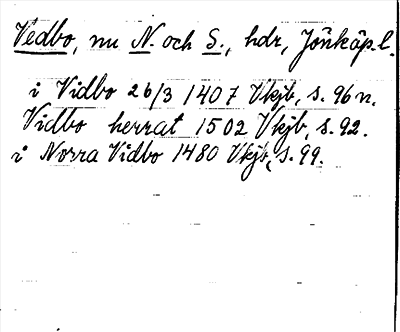 Vedbo, nu N. och S., hdr, Jönköp. l.
i Vidbo 26/3 1407 Vkjb, s. 96 n.
Vidbo herrat 1502 Vkjb, s. 92.
i Norra Vidbo 1480 Vkjb, s. 99.